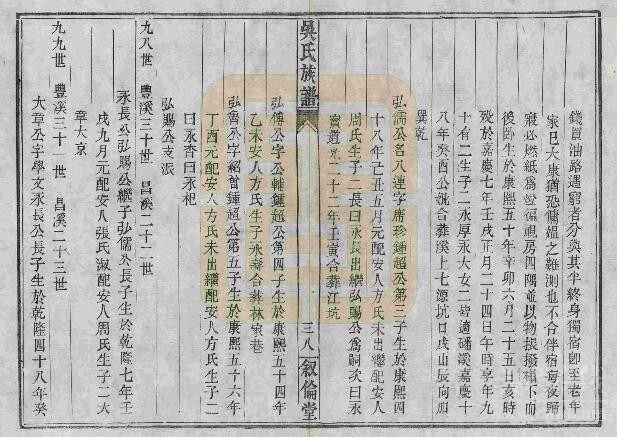 錢買油路遇窮者分與其半終身獨宿卽至老年
家巳大康猶恐傭媼之難測也不合伴宿每夜歸
寢必燃紙為燈徧視房四隅並以物捩撥榻下而
後卧生於康熙五十年辛卯六月二十五日亥時
殁於嘉慶七年壬戌正月二十四日午時享年九
十有二生子二永厚永大女二皆適磻溪嘉慶十
八年癸酉公妣合葬溪上七源坑口戌山辰向加
巽乾
弘儒公名八連字席珍鍾超公第三子生於康熙四
十八年己丑五月元配安人方氏未出繼配安人
周氏生子二長曰永長出繼弘賜公為嗣次曰永
寳道光二十二年壬寅合葬江坑
弘傅公字公輔鍾超公第四子生於康熙五十四年
乙未安人方氏生子永壽合葬林家巷
弘魯公字紹曾鍾超公第五子生於康熙五十六年
丁酉元配安人方氏未出繼配安人方氏生子二
曰永杏曰永祀
弘賜公支派
九八世 豐溪三十世 昌溪二十二世
永長公弘賜公繼子弘儒公長子生於乾隆七年壬
戌九月元配安人張氏淑配安人周氏生子二大
章大京
九九世 豐溪三十一世 昌溪二十三世
大章公字學文永長公長子生於乾隆四十八年癸
吳氏族譜
三八
叙倫堂